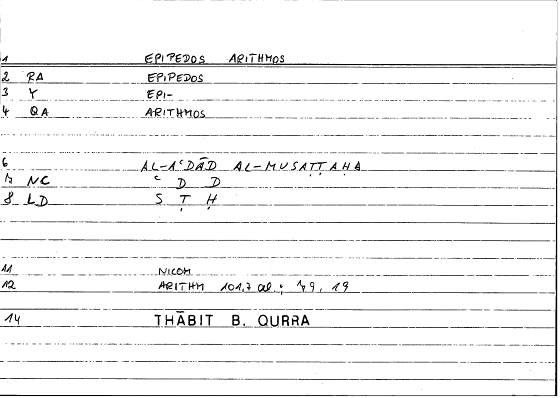 1 EPIPEDOS ARITHMOS
2 RA EPIPEDOS
3 Y EPI-
4 QA ARITHMOS
6 AL-AʿDĀD AL-MUSAṬṬAḤA
7 NC ʿ D D
8 LD S Ṭ Ḥ
11 NICOM
12 ARITHM 101,7 al; 79, 19
14 THĀBIT B. QURRA